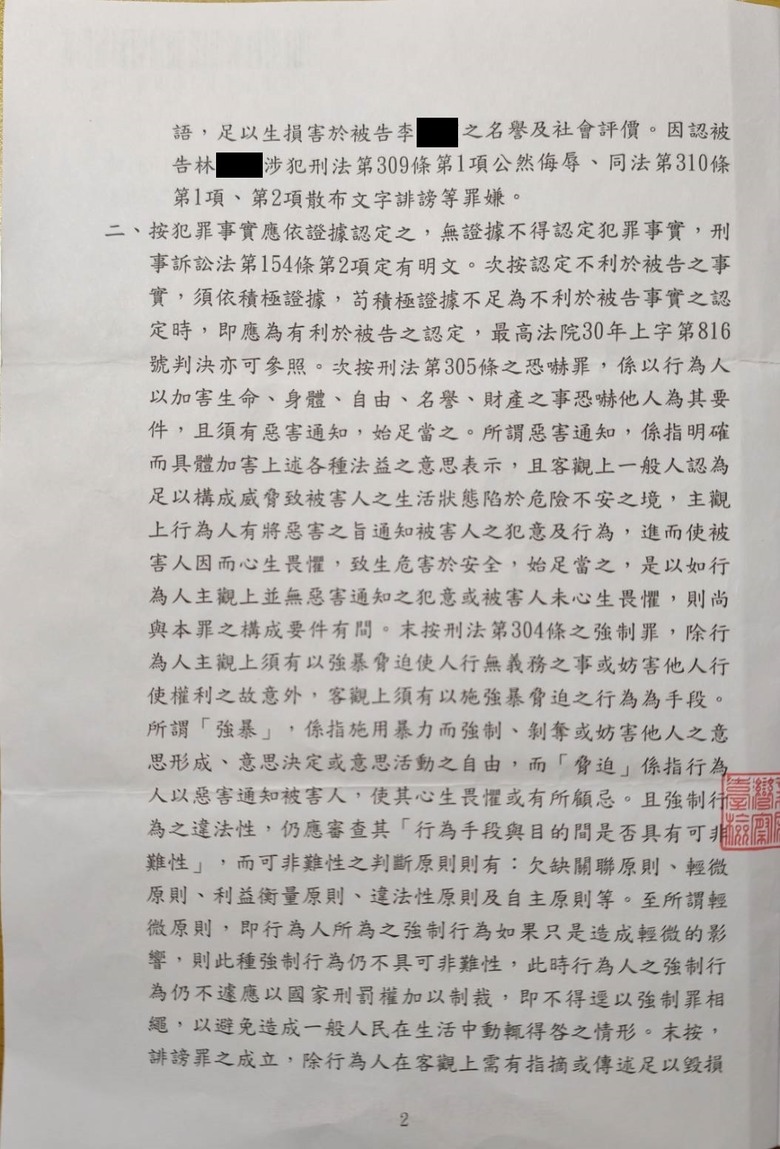 語，足以生損害於被告李 之名譽及社會評價。因認被
告林 涉犯刑法第309條第1項公然侮辱、同法第310條
第1項、第2項散布文字誹謗等罪嫌。
二、按犯罪事實應依證據認定之，無證據不得認定犯罪事實，刑
事訴訟法第154條第2項定有明文。次按認定不利於被告之事
實，須依積極證據，苟積極證據不足為不利於被告事實之認
定時，即應為有利於被告之認定，最高法院30年上字第816
號判決亦可參照。次按刑法第305條之恐嚇罪，係以行為人
以加害生命、身體、自由、名譽、財產之事恐嚇他人為其要
件，且須有惡害通知，始足當之。所謂惡害通知，係指明確
而具體加害上述各種法益之意思表示，且客觀上一般人認為
足以構成威脅致被害人之生活狀態陷於危險不安之境，主觀
上行為人有將惡害之旨通知被害人之犯意及行為，進而使被
害人因而心生畏懼，致生危害於安全，始足當之，是以如行
為人主觀上並無惡害通知之犯意或被害人未心生畏懼，則尚
與本罪之構成要件有間。末按刑法第304條之強制罪，除行
為人主觀上須有以強暴脅迫使人行無義務之事或妨害他人行
使權利之故意外，客觀上須有以施強暴脅迫之行為為手段。
所謂「強暴」，係指施用暴力而強制、剝奪或妨害他人之意
思形成、意思決定或意思活動之自由，而「脅迫」係指行為
人以惡害通知被害人，使其心生畏懼或有所顧忌。且強制行
為之違法性，仍應審查其「行為手段與目的間是否具有可非
難性」，而可非難性之判斷原則則有：欠缺關聯原則、輕微
原則、利益衡量原則、違法性原則及自主原則等。至所謂輕
微原則，即行為人所為之強制行為如果只是造成輕微的影
響，則此種強制行為仍不具可非難性，此時行為人之強制行
為仍不遽應以國家刑罰權加以制裁，即不得逕以強制罪相
繩，以避免造成一般人民在生活中動輒得咎之情形。末按，
誹謗罪之成立，除行為人在客觀上需有指摘或傳述足以毀損
2